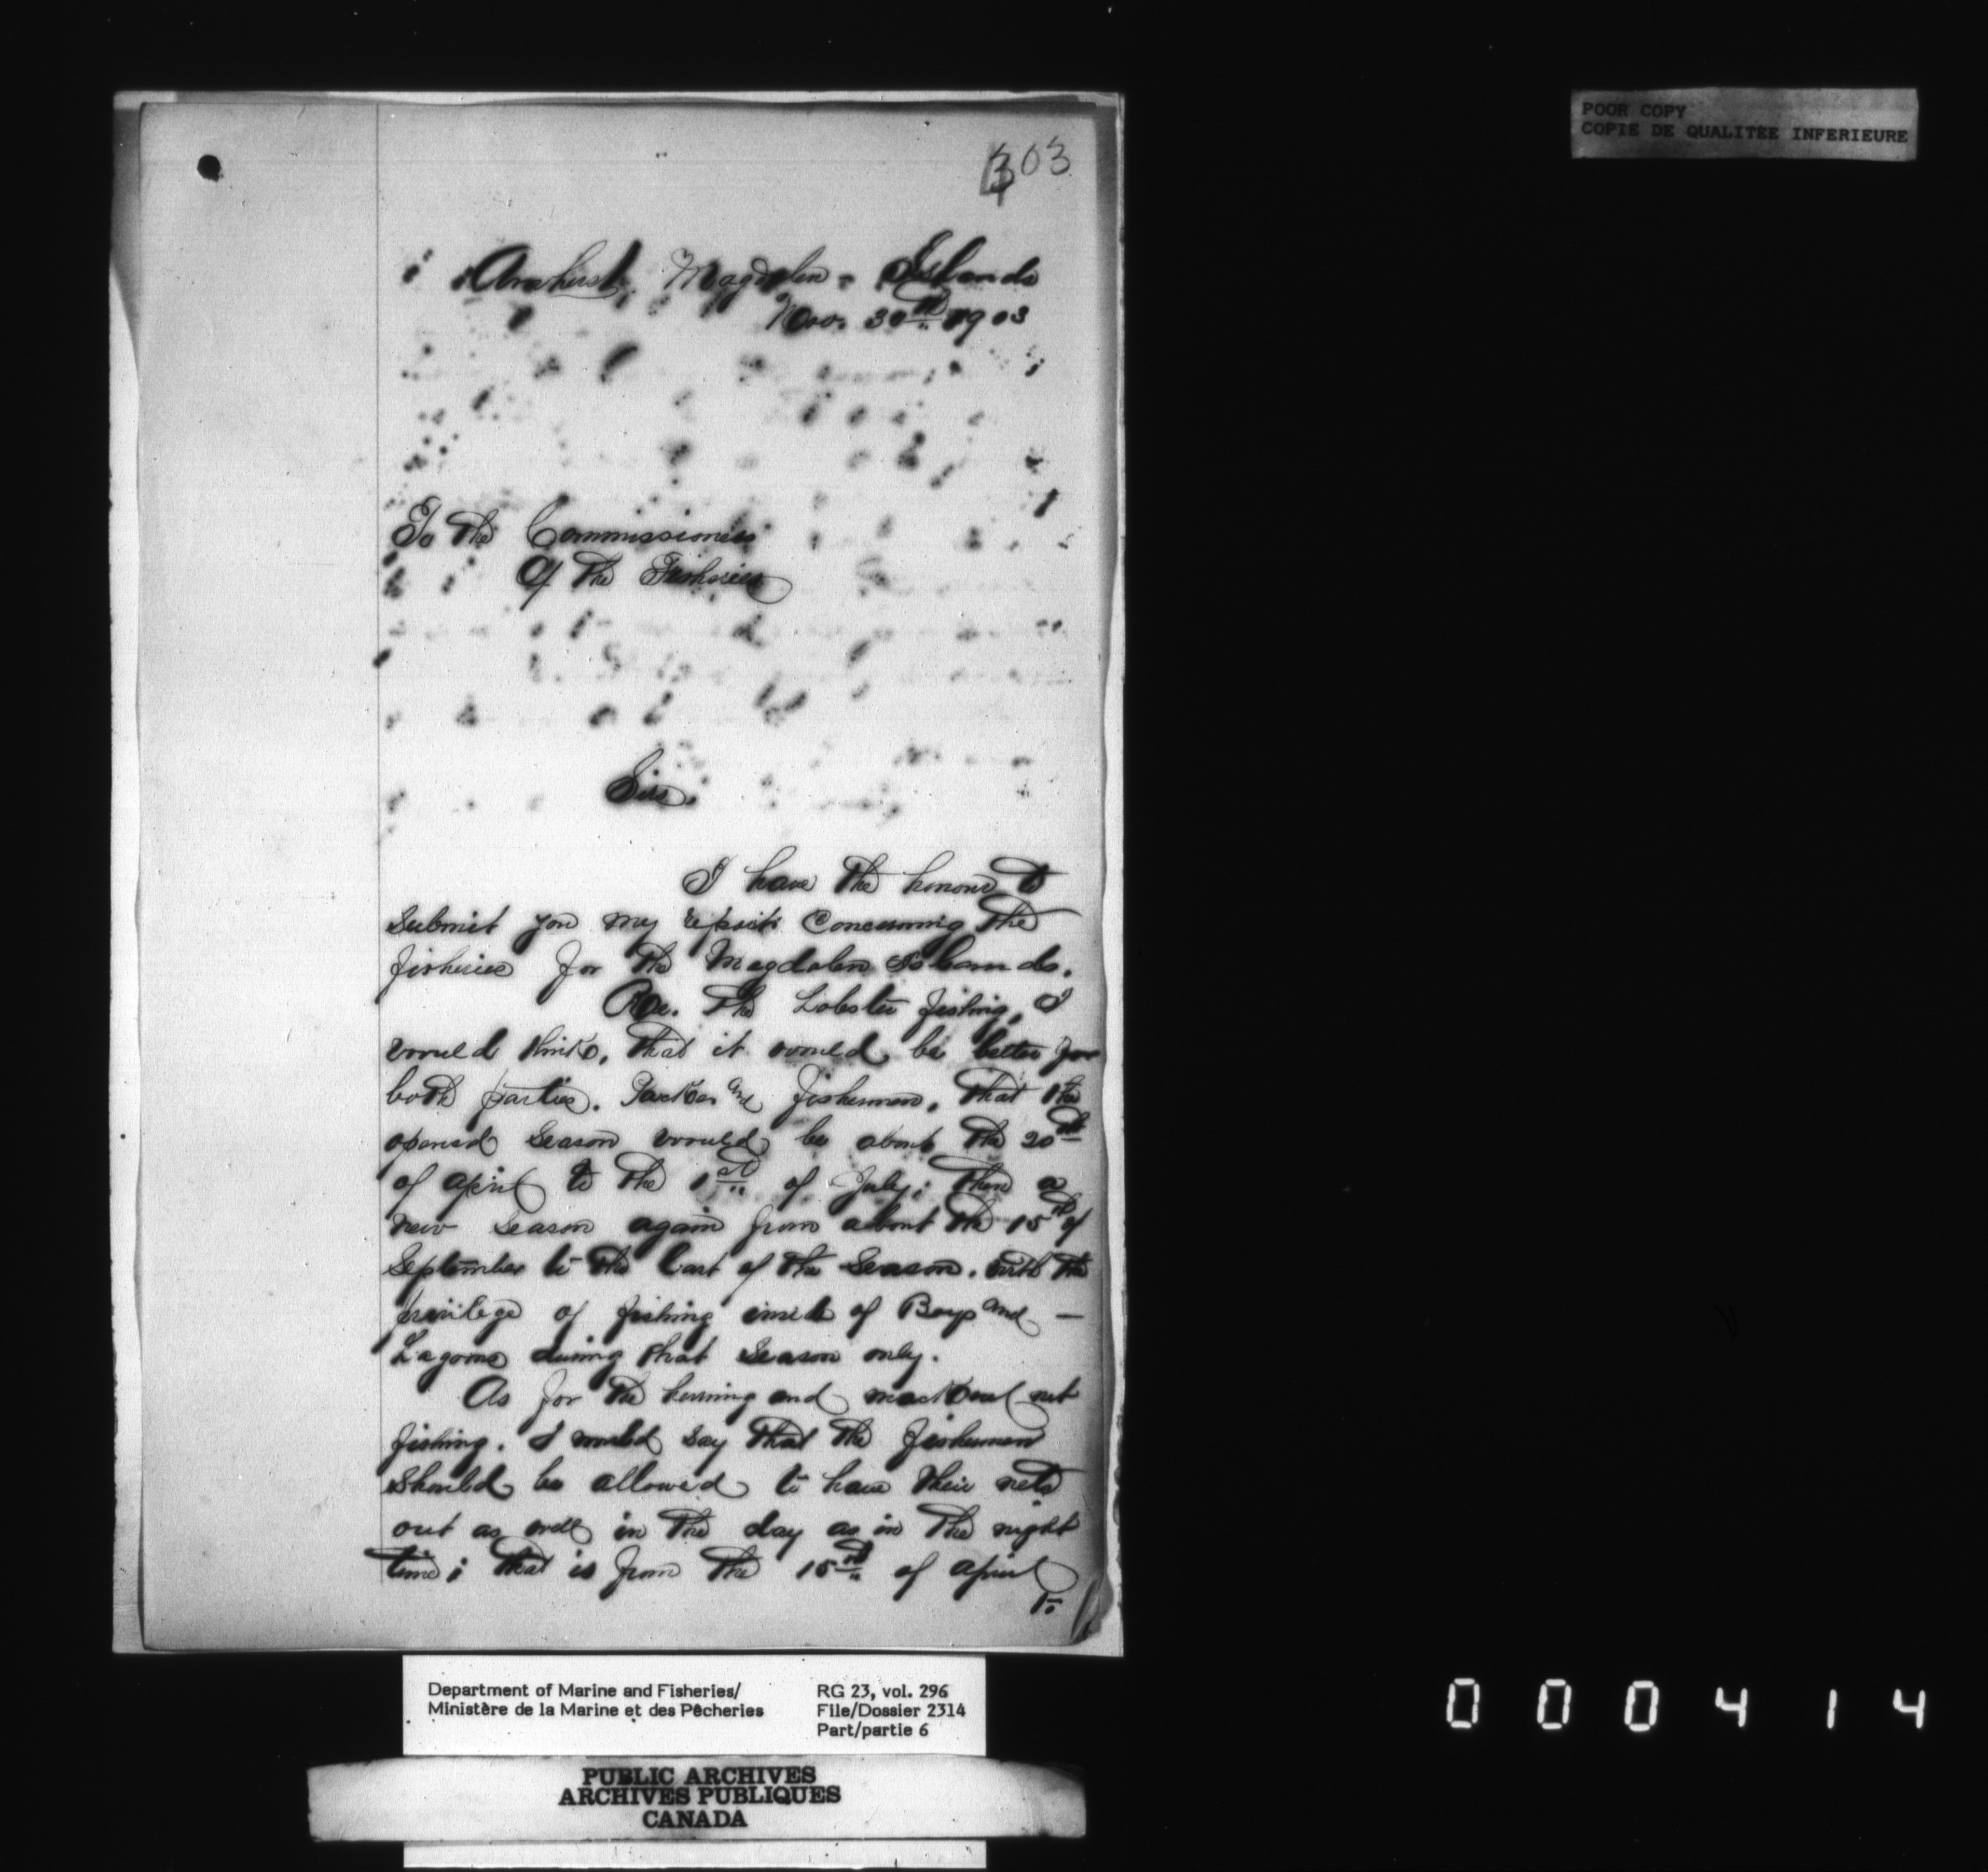 POOR COPY
COPIE DE QUALITÉE INFERIEURE
303
Amherst, Magdalen - Islands
Nov. 30th 1903
To The Commissioners
Of The Fisheries
Sirs.
I have the honour to
submit you my report concerning the
fisheries for the Magdalen Islands.
Re. The Lobster fishing, I
would think, that it would be better for
both parties. Packer and fishermen, that the
opened season would be about the 20th
of april to the 1st of July; then a
new season again from about the 15th of
September to the last of the season. with the
privilege of fishing inside of Bays and —
Lagoons during that season only.
As for the herring and mackerel net
fishing. I would say that the fishermen
should be allowed to have their nets
out as well in the day as in the night
time; that is from the 15th of april
to
Department of Marine and Fisheries/
Ministère de la Marine et des Pêcheries
RG 23, vol. 296
File/Dossier 2314
Part/partie 6
PUBLIC ARCHIVES
ARCHIVES PUBLIQUES
CANADA
000414